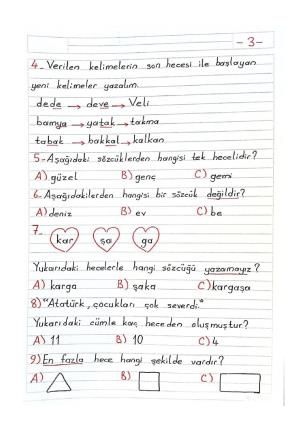 -3-
4- Verilen kelimelerin son hecesi ile başlayan
yeni kelimeler yazalım.
dede → deve → Veli
bamya → yatak → takma
tabak → bakkal → kalkan
5- Aşağıdaki sözcüklerden hangisi tek hecelidir?
A) güzel B) genç C) gemi
6- Aşağıdakilerden hangisi bir sözcük değildir?
A) deniz B) ev C) be
7-
kar şa ga
Yukarıdaki hecelerle hangi sözcüğü yazamayız?
A) karga B) şaka C) kargaşa
8) "Atatürk, çocukları çok severdi."
Yukarıdaki cümle kaç heceden oluşmuştur?
A) 11 B) 10 C) 4
9) En fazla hece hangi şekilde vardır?
A) B) C)